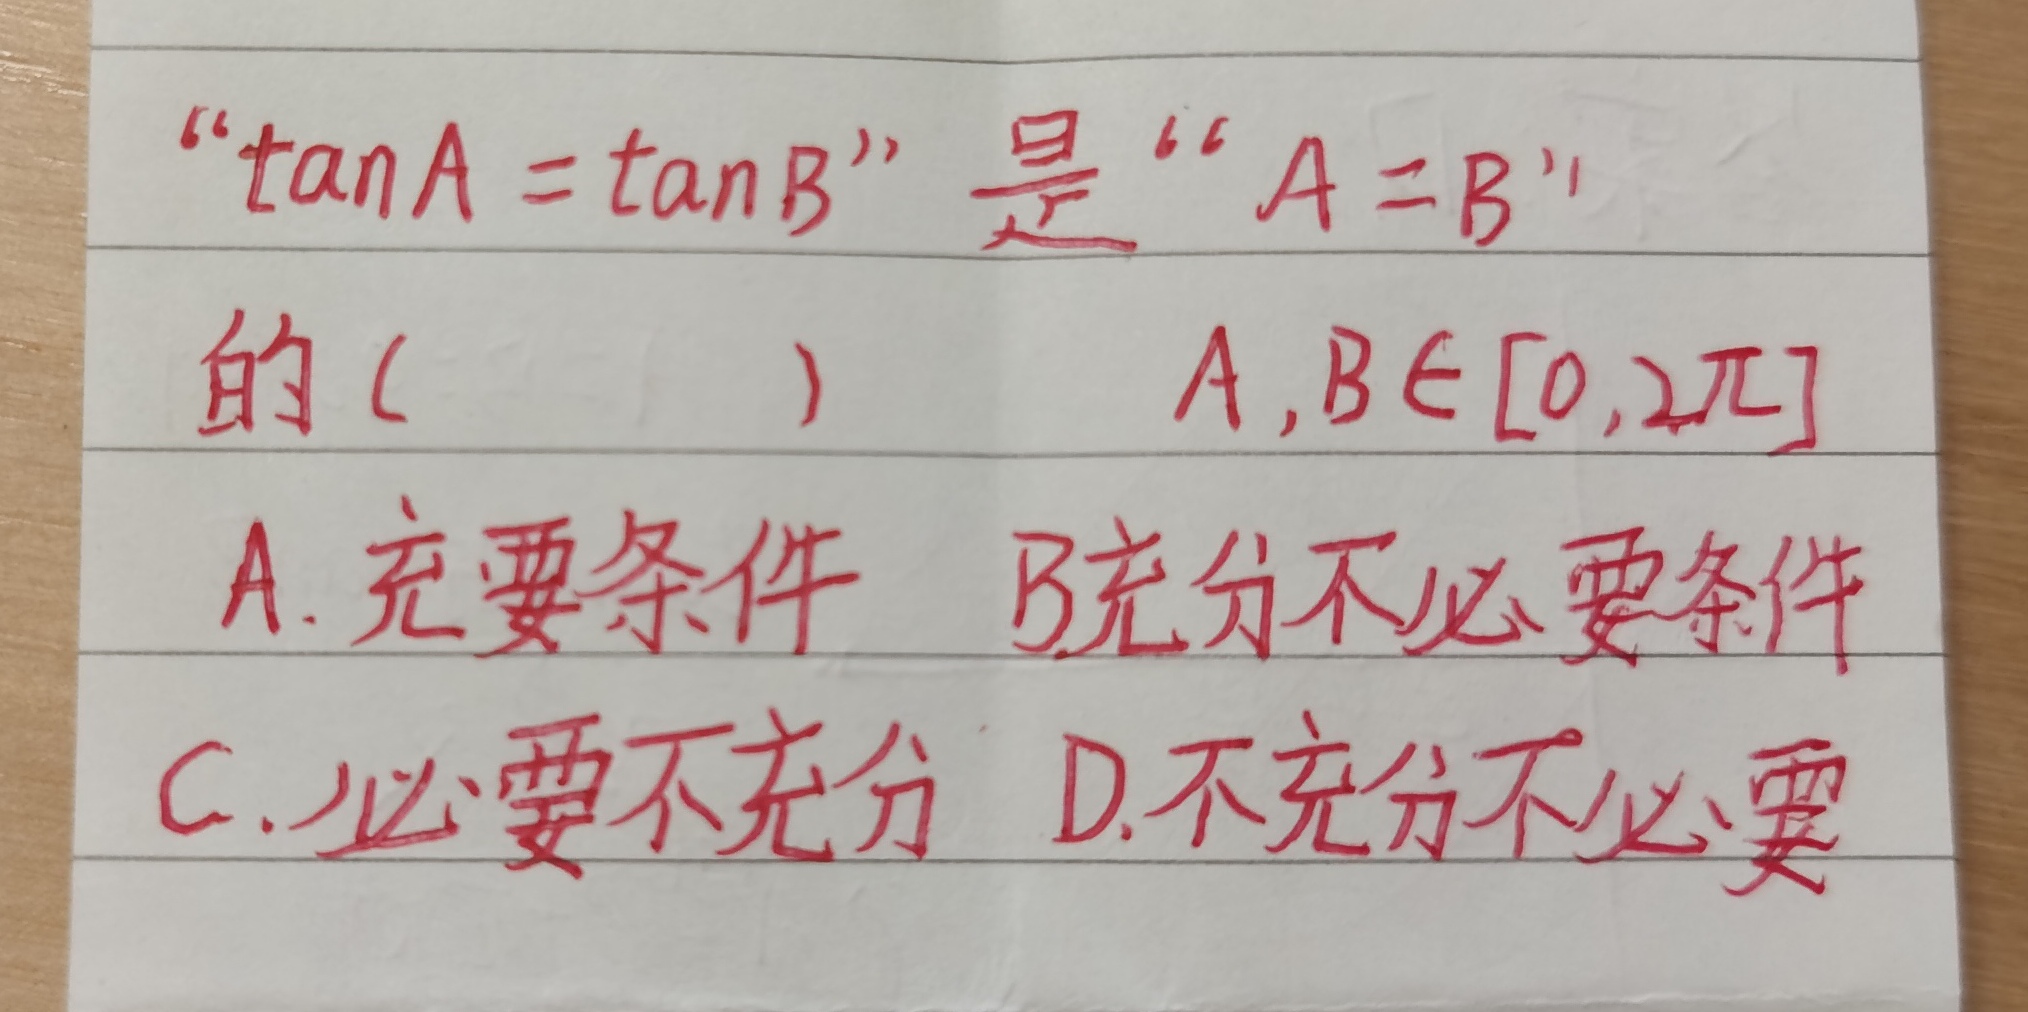 “tanA = tanB” 是 “A = B”
的（ ） A,B∈[0,2π]
A. 充要条件 B.充分不必要条件
C. 必要不充分 D.不充分不必要